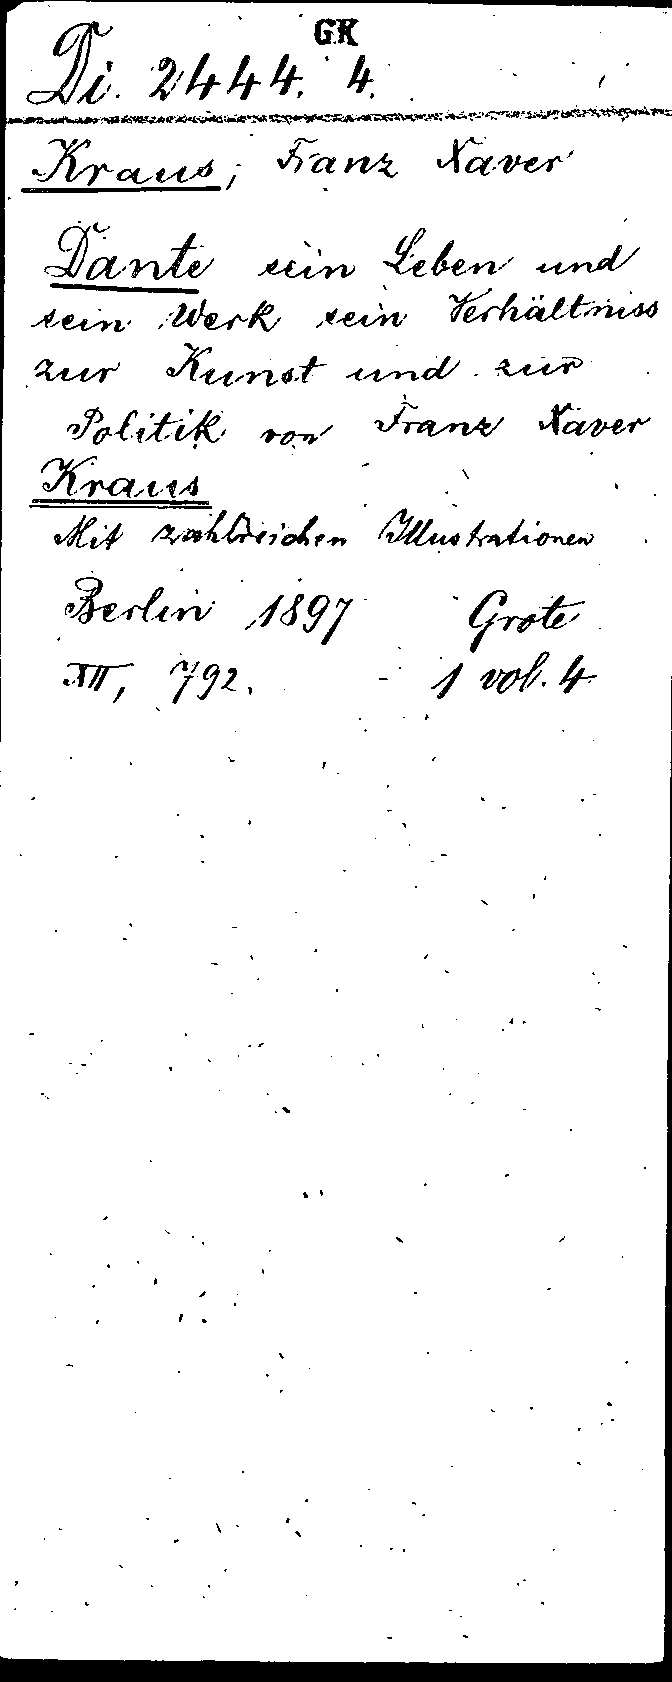 GK
Di. 2444. 4.
Kraus, Franz Xaver
Dante sein Leben und
sein Werk sein Verhältniss
zur Kunst und zur
Politik von Franz Xaver
Kraus
Mit zahlreichen Illustrationen
Berlin 1897 Grote
XII, 792. 1 vol. 4